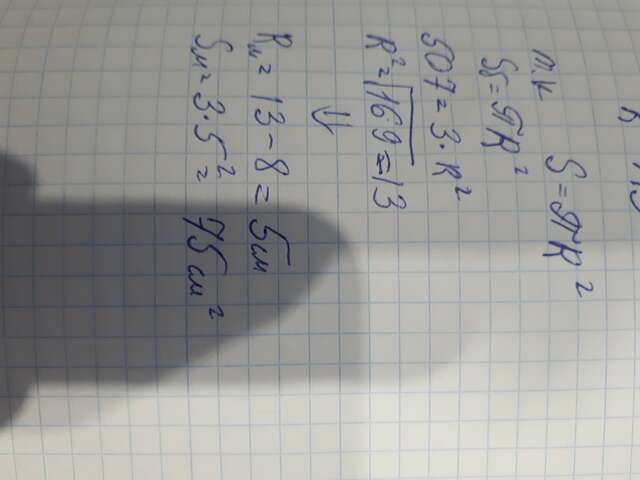 т.к S = πR²
Sб = πR²
507 = 3·R²
R² = √169 = 13
⇓
Rм = 13 - 8 = 5см
Sм = 3·5² = 75см²